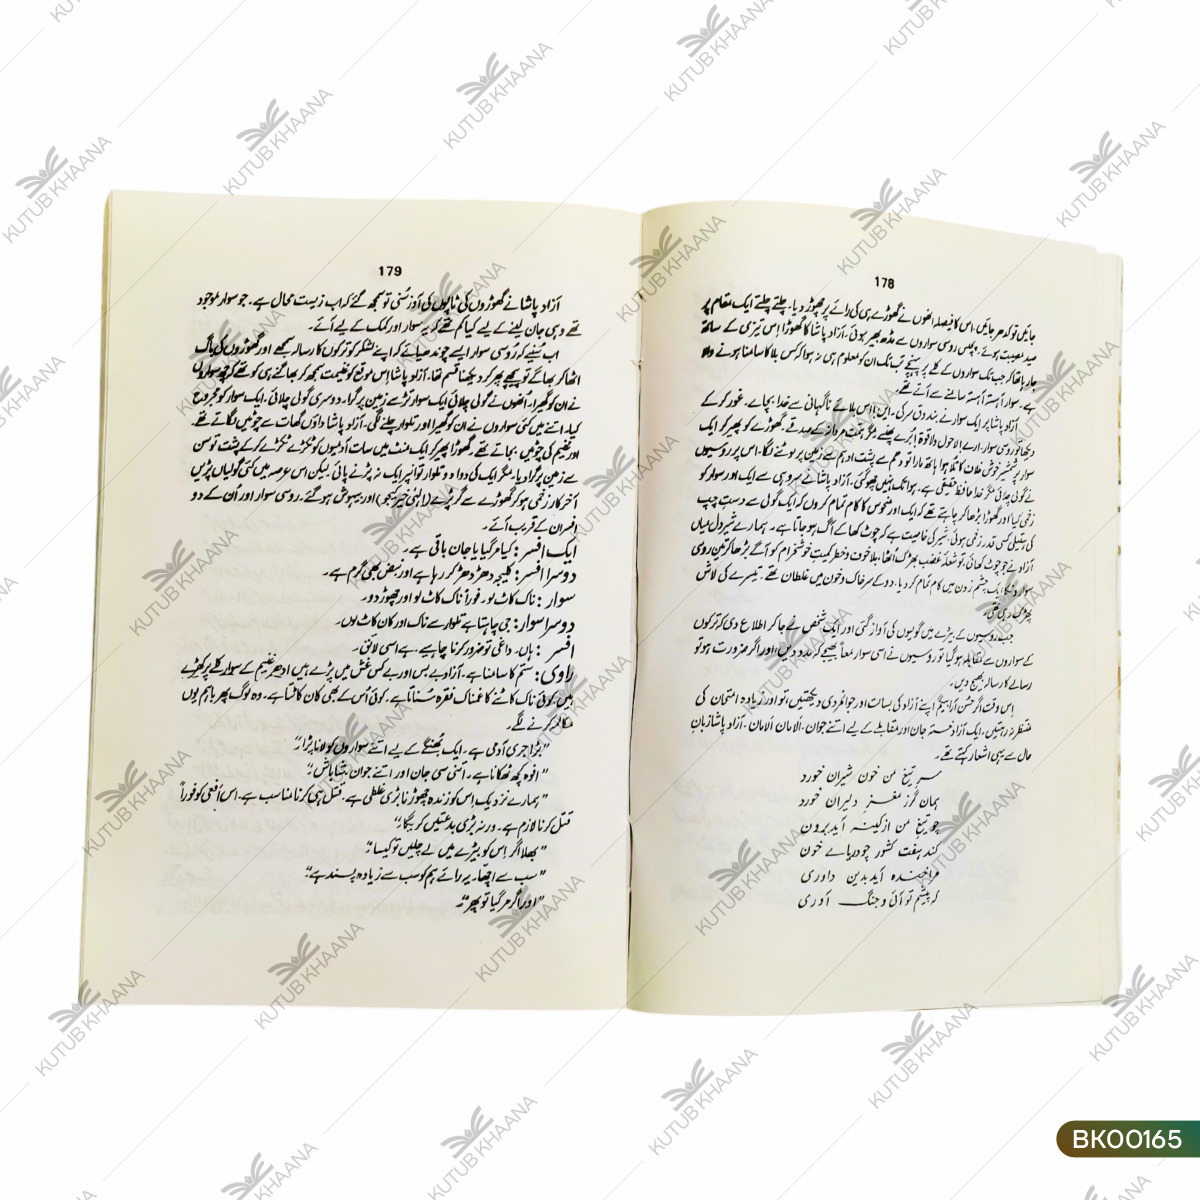 178
جائیں تو کدھر جائیں۔ اس کا فیصلہ انھوں نے گھوڑے ہی کی رائے پر چھوڑ دیا۔ چلتے چلتے ایک مقام پر
روسی سواروں سے مڈھ بھیڑ ہوئی۔ آزاد پاشا کا گھوڑا اس تیزی کے ساتھ
جا رہا تھا کہ جب تک سواروں کے گلے پر پہنچے تب تک ان کو معلوم ہی نہ ہوا کہ کس بلا کا سامنا ہونے والا
ہے۔ سوار آہستہ آہستہ سامنے سے آتے تھے۔
آزاد پاشا پر ایک سوار نے بندوق سر کی۔ ایں! اس بلائے ناگہانی سے خدا بچائے۔ غور کر کے
دیکھا تو روسی سوار، ارے! لاحول ولا قوۃ! بُرے پھنسے مگر ہمت مردانہ کے صدقے۔ گھوڑے کو پھیر کر ایک
سوار پر شمشیر خوش غلاف کا تُلا ہوا ہاتھ مارا تو دھم سے پشت ادہم سے زمین پر لوٹنے لگا۔ اس پر روسیوں
نے گولی چلائی مگر خدا حافظِ حقیقی ہے۔ ہوا تک نہیں چھو گئی۔ آزاد پاشا نے سروہی سے ایک اور سوار کو
زخمی کیا اور گھوڑا بڑھا کر چاہتے تھے کہ ایک اور منحوس کا کام تمام کروں کہ ایک گولی سے دستِ چپ
کی ہتھیلی کسی قدر زخمی ہوئی۔ شیر کی خاصیت ہے کہ چوٹ کھا کے آگ ہو جاتا ہے۔ ہمارے شیر دل میاں
آزاد نے جو چوٹ کھائی تو شعلۂ غضب بھڑک اٹھا، بلا خوف و خطر کمیتِ خوش خرام کو آگے بڑھا کر تین روسی
چشم زدن میں کام تمام کر دیا۔ دو کے سر خاک و خون میں غلطاں تھے۔ تیسرے کی لاش
پھڑک رہی تھی۔
جب روسیوں کے بیڑے میں گولیوں کی آواز گئی اور ایک شخص نے جا کر اطلاع دی کہ ترکوں
کے سواروں سے مقابلہ ہو گیا تو روسیوں نے اسی سوار معاً بھیجے کہ مدد دیں اور اگر ضرورت ہو تو
رسالے کا رسالہ بھیج دیں۔
اس وقت اگر حُسن آرا بیگم اپنے آزاد کی بسالت اور جوانمردی دیکھتیں تو اور زیادہ امتحان کی
منتظر نہ رہتیں۔ ایک آزاد خستہ جان اور مقابلے کے لیے اتنے جوان۔ الاماں الاماں۔ آزاد پاشا زبانِ
حال سے یہی اشعار کہتے تھے۔
سرِ تیغ من خون شیراں خورد
ہمان گرز مغز دلیراں خورد
چو تیغ من از کینہ آید بروں
کند ہفت کشور چو دریائے خوں
آید بدین داوری
کہ پیشم تو آئی و جنگ آوری
179
آزاد پاشا نے گھوڑوں کی ٹاپوں کی آواز سُنی تو سمجھ گئے کہ اب زیست محال ہے۔ جو سوار موجود
تھے وہی جان لینے کے لیے کیا کم تھے کہ یہ سوار اور کمک کے لیے آئے۔
اب سُنیے کہ رُوسی سوار ایسے چوندھیائے کہ اپنے لشکر کو ترکوں کا رسالہ سمجھے اور گھوڑوں کی باگ
اٹھا کر بھاگے تو پیچھے پھر کر دیکھنا قسم تھا۔ آزاد پاشا اس موقع کو غنیمت سمجھ کر بھاگنے ہی کو تھے کہ چھ سواروں
نے ان کو گھیرا۔ انھوں نے گولی چلائی ایک سوار تڑ سے زمین پر گرا۔ دوسری گولی چلائی۔ ایک سوار کو مجروح
کیا۔ اتنے میں کئی سواروں نے ان کو گھیرا اور تلوار چلنے لگی۔ آزاد پاشا داؤں گھات سے چوٹیں لگاتے تھے
اور غنیم کی چوٹیں بچاتے تھے۔ گھوڑا پھیر کر ایک منٹ میں سات آدمیوں کو ٹکڑے ٹکڑے کر کے پشت توسن
سے زمین پر گرا دیا۔ مگر ایک کی دوا دو، تلوار تو انپر ایک نہ پڑنے پائی۔ لیکن اس عرصہ میں کئی گولیاں پڑیں
آخر کار زخمی ہو کر گھوڑے سے گر پڑے (الٰہی خیر کیجو) اور بیہوش ہو گئے۔ روسی سوار اور اُن کے دو
افسر ان کے قریب آئے۔
ایک افسر : کیا مر گیا یا جان باقی ہے۔
دوسرا افسر : کلیجہ دھڑ دھڑ کر رہا ہے اور نبض بھی گرم ہے۔
سوار : ناک کاٹ لو۔ فوراً ناک کاٹ لو اور چھوڑ دو۔
دوسرا سوار : جی چاہتا ہے تلوار سے ناک اور کان کاٹ لوں۔
افسر : ہاں۔ داغی تو ضرور کرنا چاہیے۔ ہے اسی لائق۔
راوی : ستم کا سامنا ہے۔ آزاد بے بس اور بے کس غش میں پڑے ہیں ادھر غنیم کے سوار گلے پر کھڑے
ہیں۔ کوئی ناک کاٹنے کا غمناک فقرہ سُناتا ہے۔ کوئی اُس کے بھی کان کاٹتا ہے۔ وہ لوگ پھر باہم یوں
مکالمہ کرنے لگے۔
”بڑا جری آدمی ہے۔ ایک بُھنگے کے لیے اتنے سواروں کو لانا پڑا۔“
”افوہ کچھ ٹھکانا ہے۔ اتنی سی جان اور اتنے جوان۔ شاباش۔“
”ہمارے نزدیک اس کو زندہ چھوڑنا بڑی غلطی ہے۔ قتل ہی کرنا مناسب ہے۔ اس افعی کو فوراً
قتل کرنا لازم ہے۔ ورنہ بڑی بدعتیں کریگا۔“
”بھلا اگر اس کو بیڑے میں لے چلیں تو کیسا۔“
”سب سے اچھا۔ یہ رائے ہم کو سب سے زیادہ پسند ہے۔“
”اور اگر مر گیا تو پھر۔“
KUTUB KHAANA
BK00165